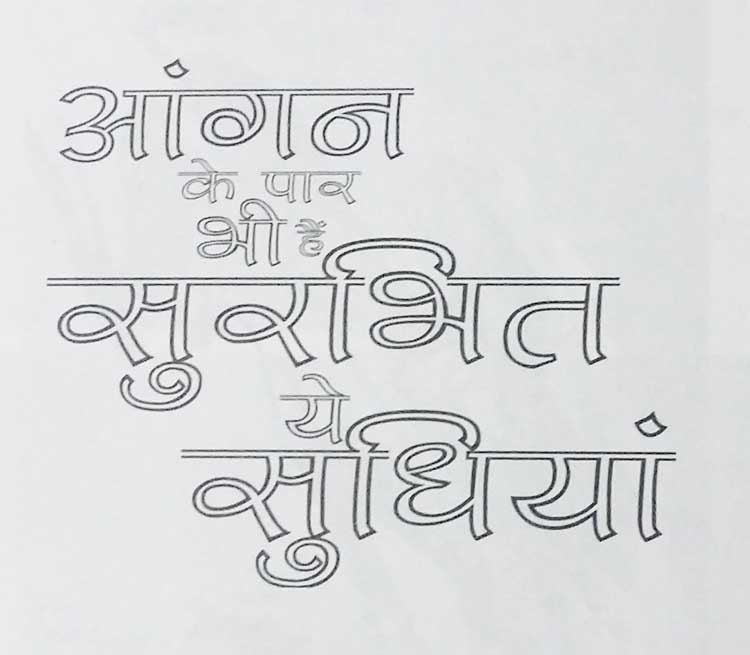 आंगन
के पार
भी हैं
सुरभित
ये
सुधियां